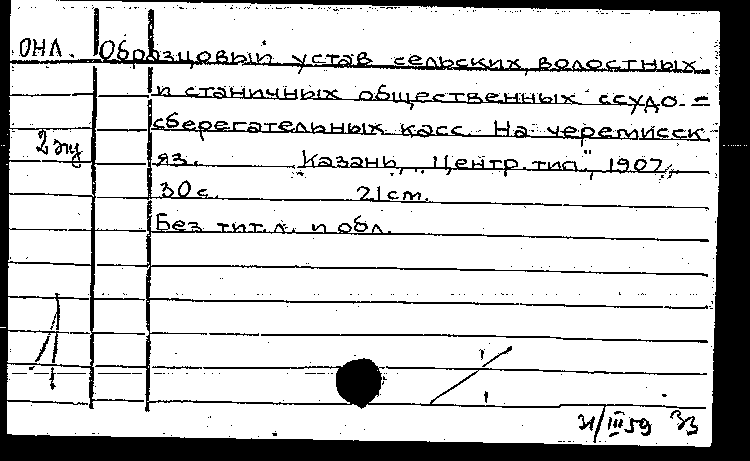 ОНЛ. Образцовый устав сельских, волостных
и станичных общественных ссудо-=
сберегательных касс. На черемисск.
2 экз
яз. Казань, "Центр. тип.", 1907.
30 с. 21 см.
Без тит. л. и обл.
31/III 59